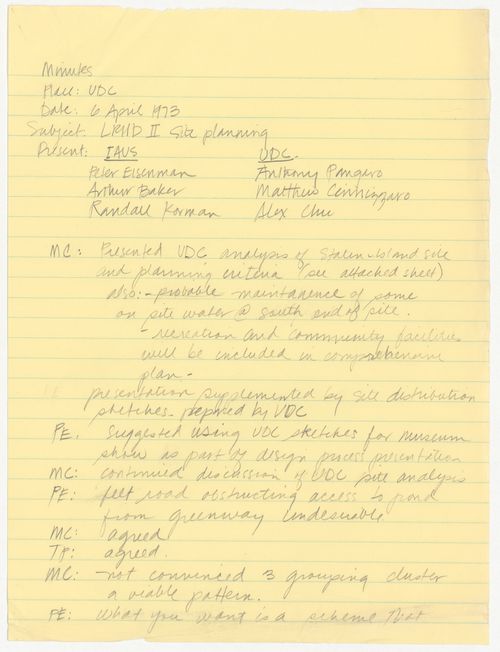 Minutes
Place: UDC
Date: 6 April 1973
Subject: LRHD II Site planning
Present: IAUS UDC.
Peter Eisenman Anthony Pangaro
Arthur Baker Matthew Cannizzaro
Randall Korman Alex Chu
MC: Presented UDC analysis of Staten Island site
and planning criteria (see attached sheet)
also: - probable maintanence of some
on site water @ south end of site.
- recreation and community facilities
will be included in comprehensive
plan -
presentation supplemented by site distribution
sketches - prepared by UDC
PE. Suggested using UDC sketches for museum
show as part of design process presentation
MC: continued discussion of UDC site analysis
PE: felt road obstructing access to pond
from greenway undesirable
MC: agreed
TP: agreed.
MC: - not convinced 3 grouping cluster
a viable pattern.
PE: What you want is a scheme that